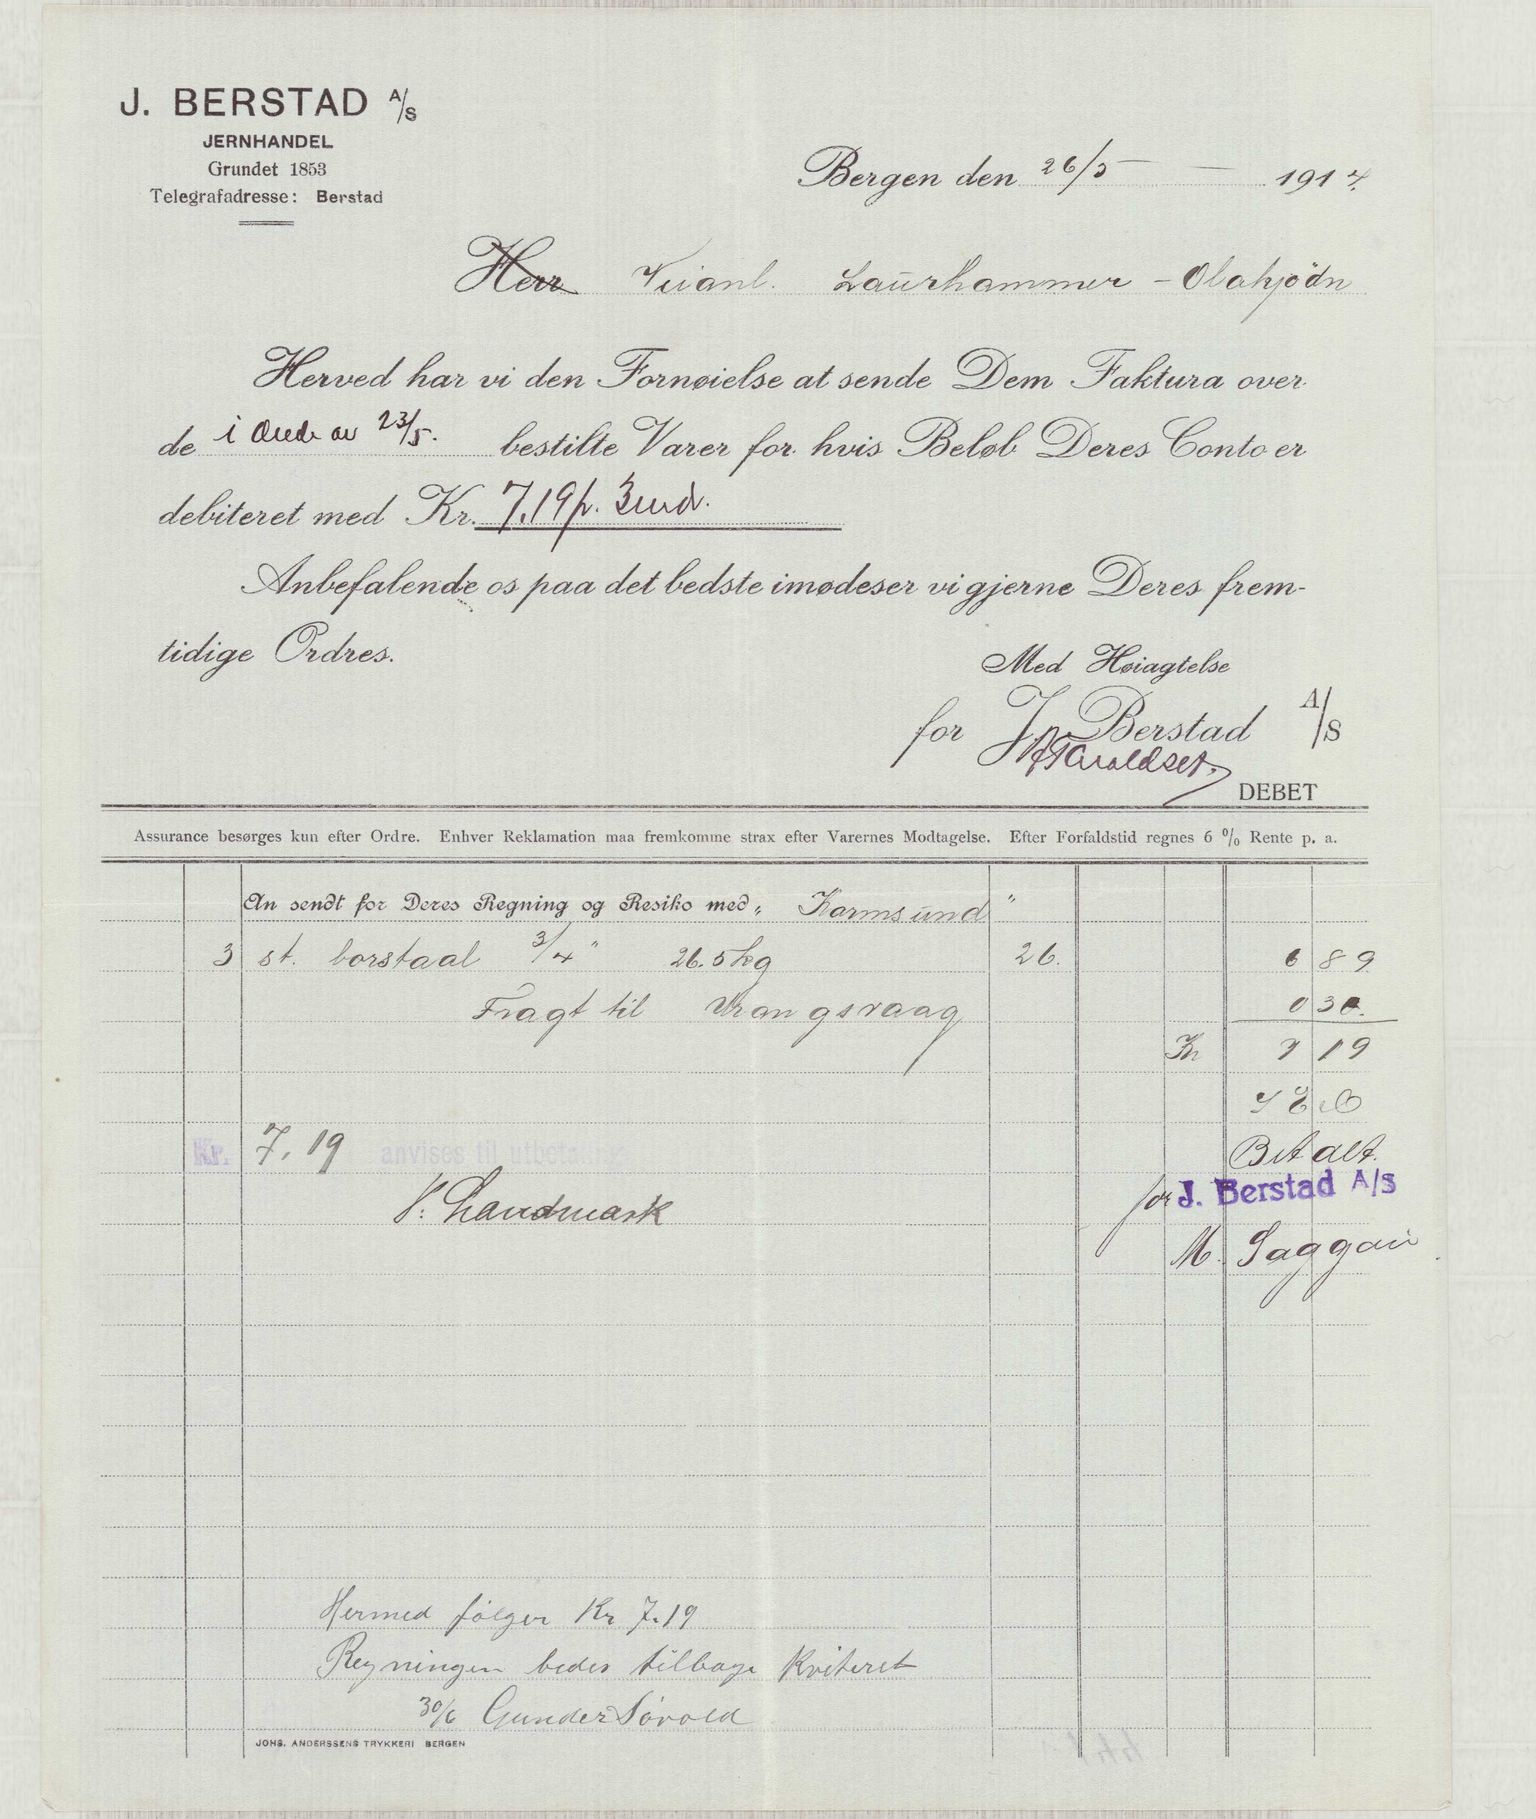 J. BERSTAD A/S
JERNHANDEL
Grundet 1853
Telegrafadresse: Berstad
Bergen den 26/5 1914.
Herr Veianl. Laurhammer - Olakjödn
Herved har vi den Fornøielse at sende Dem Faktura over
de i Ordr av 23/5. bestilte Varer for hvis Beløb Deres Conto er
debiteret med Kr. 7.19 p. 3 md.
Anbefalende os paa det bedste imødeser vi gjerne Deres frem-
tidige Ordres.
Med Høiagtelse
for J. Berstad A/S
DEBET
Assurance besørges kun efter Ordre. Enhver Reklamation maa fremkomme strax efter Varernes Modtagelse. Efter Forfaldstid regnes 6 % Rente p. a.
An sendt for Deres Regning og Resiko med „ Karmsund "
3 st. borstaal 3/4" 26.5 kg 26. 6 89
Fragt til Vrangsvaag 0 30.
Kr 7 19
Kr. 7.19 anvises til utbet
Betalt.
V. Landmark
for J. Berstad A/S
M. Saggau
Hermed følger Kr 7.19
Regningen bedes tilbage kviteret
30/6 Gunder Sövold
JOHS. ANDERSSENS TRYKKERI BERGEN